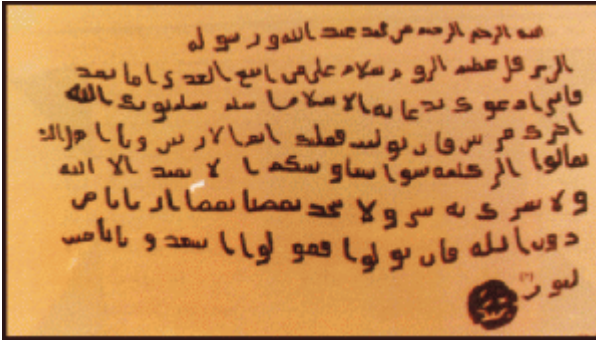 بسم الله الرحمن الرحيم من محمد عبد الله ورسوله
الى هرقل عظيم الروم سلام على من اتبع الهدى اما بعد
فاني ادعوك بدعاية الاسلام اسلم تسلم يوتك الله
اجرك مرتين فان توليت فعليك اثم الاريسين ويا اهل الك
تعالوا الى كلمة سوا بيننا وبينكم ا لا نعبد الا الله
ولا نشرك به شيا ولا يتخذ بعضنا بعضا اربابا من
دون الله فان تولوا فقولوا اشهدوا بانا مس
لمون